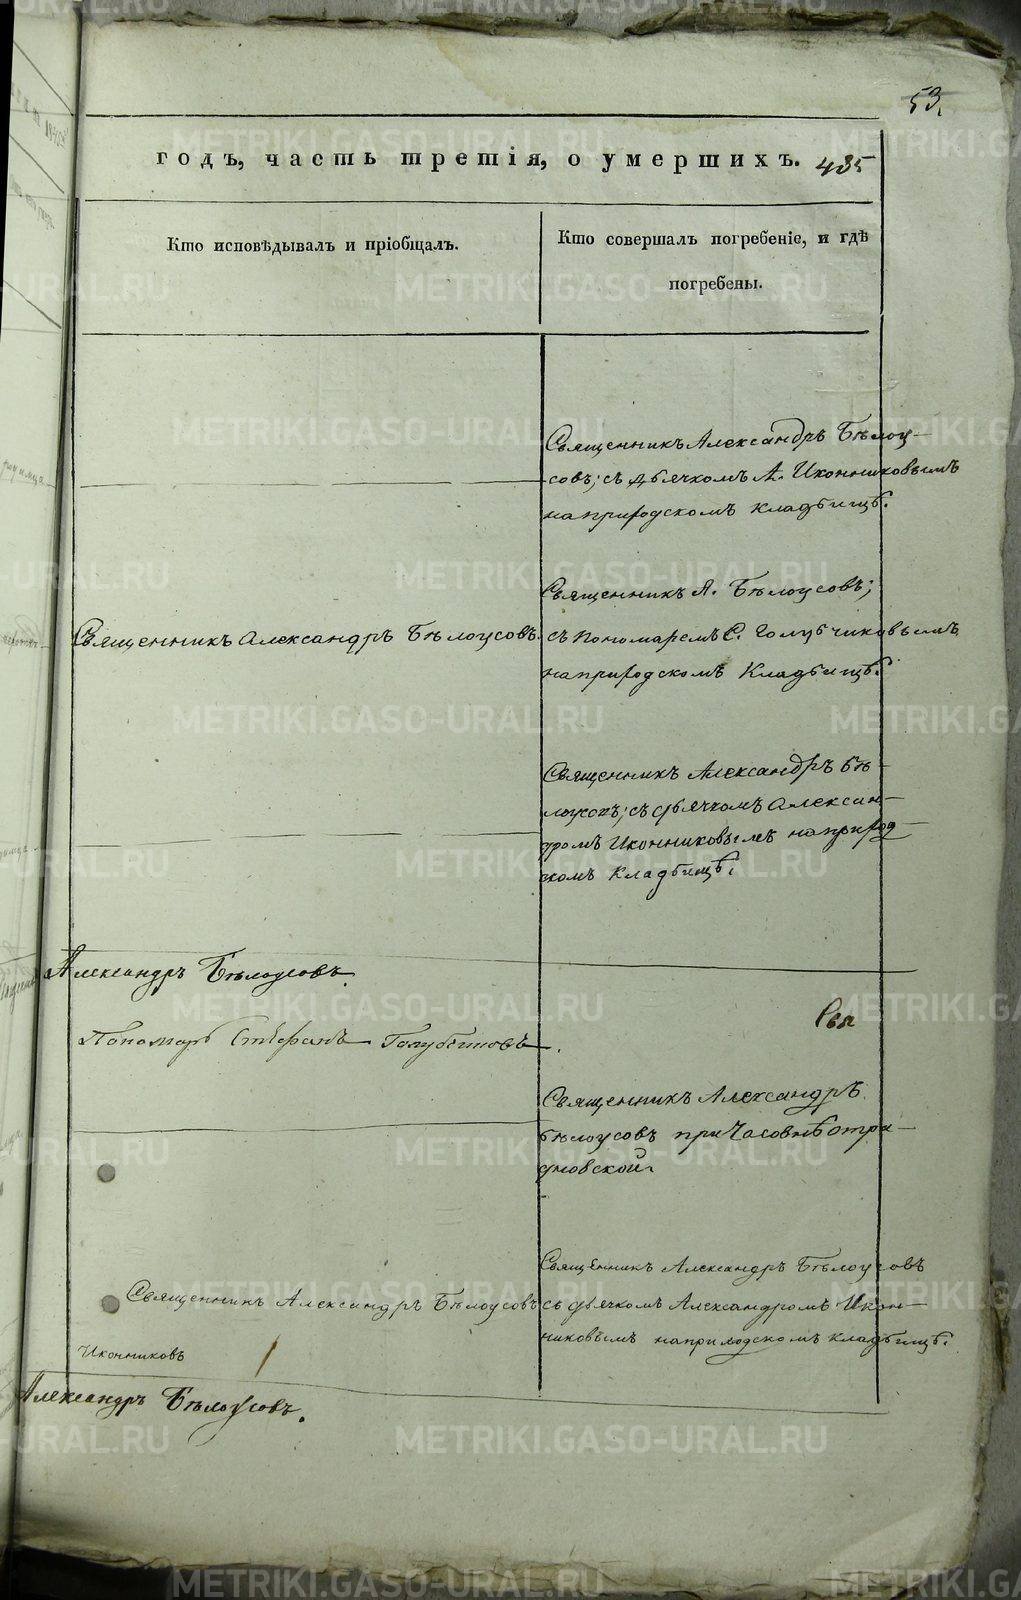 53.
годъ, часть третія, о умершихъ. 435
Кто исповѣдывалъ и пріобщалъ.
Кто совершалъ погребеніе, и гдѣ
погребены.
Священникъ Александръ Бѣлоу-
совъ; съ дьячкомъ А. Иконниковымъ
на приходскомъ кладбищѣ.
Священникъ Александръ Бѣлоусовъ.
Священникъ А. Бѣлоусовъ;
съ Пономаремъ С. Голубчиковымъ
на приходскомъ Кладбищѣ.
Священникъ Александръ Бѣ-
лоусовъ; съ дьячкомъ Алексан-
дромъ Иконниковымъ на приход-
скомъ кладбищѣ.
Александръ Бѣлоусовъ.
Пономарь Стефанъ
Свя
Священникъ Александръ
Бѣлоусовъ при Часовнѣ
Священникъ Александръ Бѣлоусовъ
Священникъ Александръ Бѣлоусовъ
съ дьячкомъ Александромъ Икон-
никовымъ на приходскомъ кладбищѣ.
Иконниковъ
Александръ Бѣлоусовъ.
METRIKI.GASO-URAL.RU